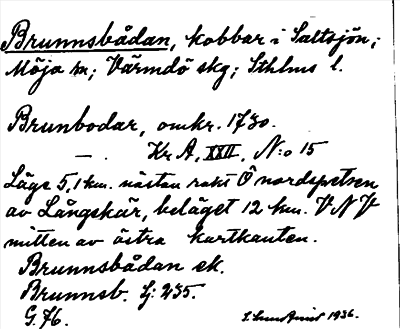 Brunnsbådan, kobbar i Saltsjön;
Möja sn; Värmdö skg; Sthlms l.
Brunbodar, omkr. 1730.
— . Kr. A, XXII, N:o 15
Läge 5,1 km. nästan rakt Ö nordspetsen
av Långskär, beläget 12 km. VNV
mitten av östra kartkanten.
Brunnsbådan ek.
Brunnsb. Lj: 235.
G. 76. 1936.